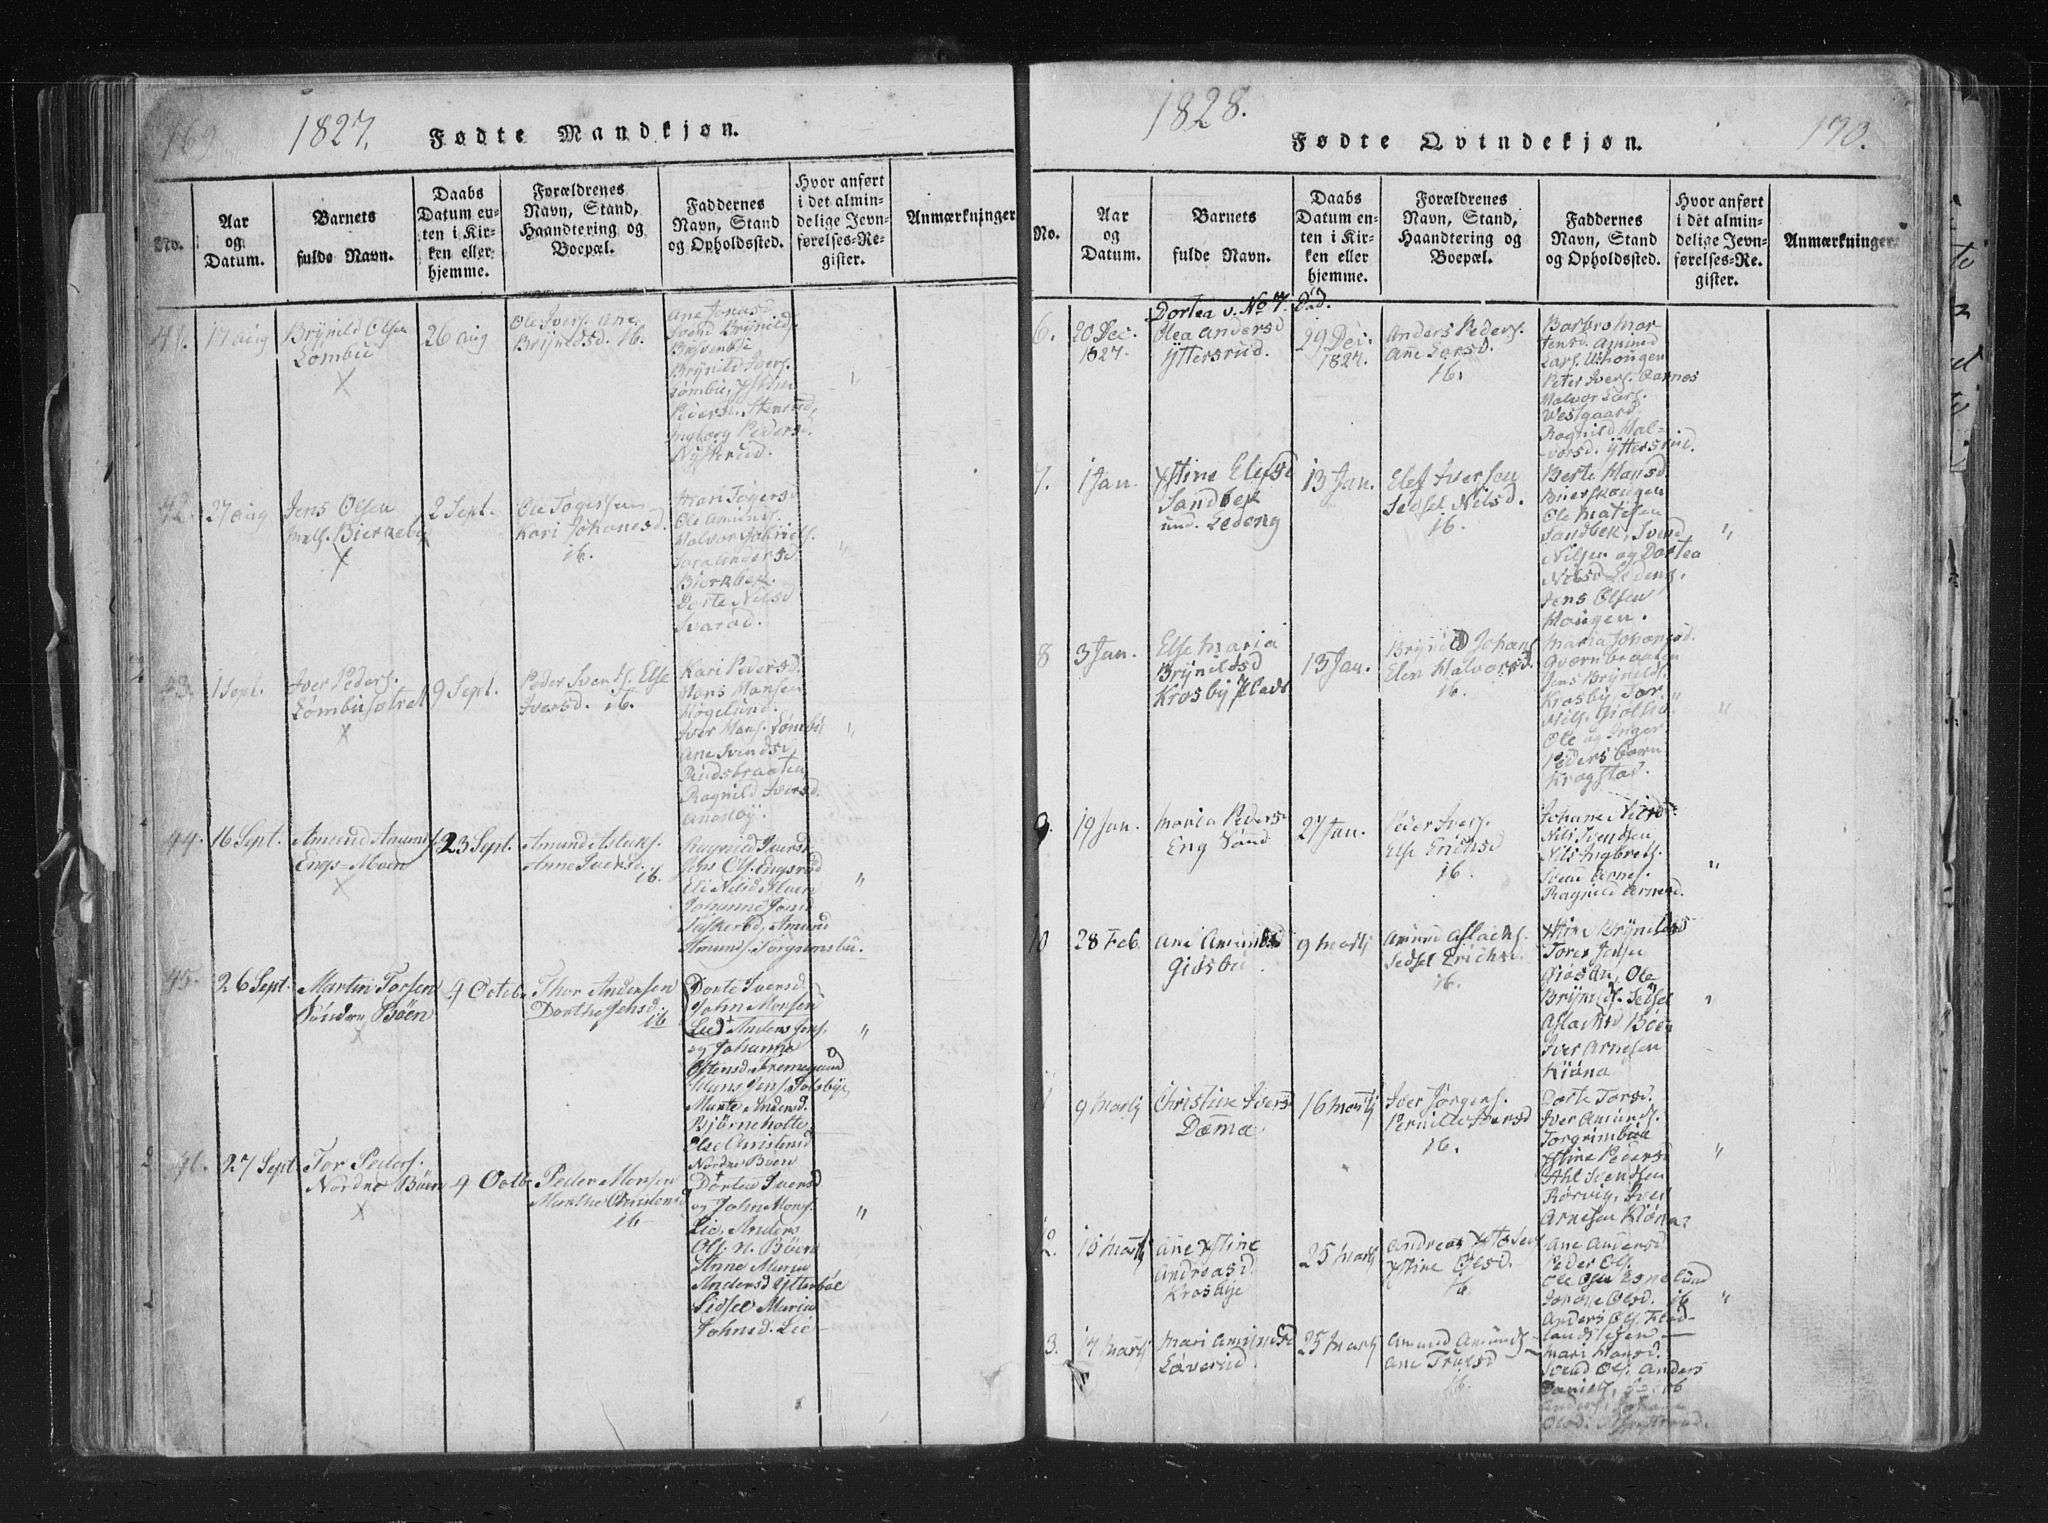 169
1827.
Fødte Mandkjøn.
No.
Aar
og
Datum.
Barnets
fulde Navn.
Daabs
Datum en-
ten i Kir-
ken eller
hjemme.
Forældrenes
Navn, Stand,
Haandtering og
Boepæl.
Faddernes
Navn, Stand
og Opholdssted.
Hvor anført
i det almin-
delige Jevn-
førelses-Re-
gister.
Anmærkninger
41.
17 aug
Brynild Olsen
Lømbu
X
26 aug
Ole Ivers. Ane
Brynildsd. 16.
Ane Jonasd
Svend Brynilds.
Brynild Ivers.
Lømbu,
Peders. Stensrud,
Ingborg Pedersd.
Nystrud.
42.
27 aug
Jens Olsen
Bierkebek
X
2 Sept.
Ole Tøgersen
Kari Johanesd.
16.
Mari Tøgersd
Ole Amunds.
Halvor Gabriels.
Sara Andersd.
Bierkbek
Dorte Nilsd
Svarad.
"
43.
1 Sept.
Iver Peders.
Lømbusætret
X
9 Sept.
Peder Svends. Else
Iversd. 16.
Kari Pedersd.
Hans Hansen
Høgelund.
Iver Hans. Lømbu
Ane Svendsd
Rudsbraaten,
Ragnild Iversd.
"
44.
16 Sept.
Amund Amunds.
Engs-Moen
X
23 Sept.
Amund Aslaks.
Anne Iversd.
16.
Ragnild Iversd.
Jens Ols. Engsrud
Eli Nilsd Moen
Johanne Jonsd
Amund
Amunds. Torgrimsbu.
"
45.
26 Sept.
Martin Torsen
Søndre Bøen
X
4 Octobr
Thor Andersen
Dorthe Jensd.
16
Dorte Iversd.
John Monsen
Lie, Anders Jens.
og Johanne
Ostensd. Fremegaard
Hans Jens. Tolsbye,
Marte Andersd.
Bjørneholte
Else Christensd
Nordre Bøen
"
46.
27 Sept.
Tor Peders.
Nordre Bøen
X
4 Octb.
Peder Monsen
Marthe Christensd
16
Dortea Iversd
og John Mons.
Lie, Anders
Ols. n. Bøen
Anne Maria
Andersd Ytterbøl
Sidsel Maria
Johnsd. Lie
"
1828.
Fødte Qvindekjøn.
170.
No.
Aar
og
Datum.
Barnets
fulde Navn.
Daabs
Datum en-
ten i Kir-
ken eller
hjemme.
Forældrenes
Navn, Stand,
Haandtering og
Boepæl.
Faddernes
Navn, Stand
og Opholdssted.
Hvor anført
i det almin-
delige Jevn-
førelses-Re-
gister.
Anmærkninger
Dortea v. No 7.
6.
20 Dec.
1827.
Olea Andersd
Yttersrud.
29 Dec.
1827.
Anders Peders.
Ane Larsd.
16.
Barbro Mar-
tensd. Amund
Lars. Uhougen
Peter Ivers. Aarnes
Halvor Lars.
Westgaard.
Ragnild Hal-
vorsd. Yttersrud
7.
1 Jan.
Xstine Elefsd
Sandbek
und. Ledeng
13 Jan.
Elef Iversen
Sedsel Nilsd.
16.
Berte Hansd.
Buerskougen
Ole Matisen
Sandbek, Svend
Nilsen og Dortea
Nilsd Ledeng.
Jens Olsen
Hougen.
"
8
3 Jan.
Else Maria
Brynildsd
Krosby Plads
13 Jan.
Brynild Johans.
Elen Halvorsd.
16.
Maria Johanesd.
Qværnbraaten
Jens Brynilds.
Krosby, Tor
Nils. Giølstad.
Ole og Inger
Peders Barn
Krogstad.
"
9.
19 Jan.
Maria Pedersd
Eng Sand
27 Jan.
Peder Ivers.
Else Erichsd
16.
Johane Nilsd.
Nils Svendsen
Nils Ingbrets.
Svend Arnes.
Ragnild Arnesd.
"
10
28 Feb.
Ane Amundsd
Giøsbu
9 Martj
Amund Aslachs.
Sedsel Erichsd.
16.
Xstine Brynildsd
Tores Jensen
Giøsbu, Ole
Brynilds. Sedsel
Aslachsd Bøen
Iver Arnesen
Kiøna
"
11
9 Martj
Christine Iversd
Dæma
16 Martj
Iver Jørgens.
Pernille Iversd
16.
Dorte Torsd.
Iver Amunds.
Torgrimbue
Xstine Pedersd
Ahl Svendsen
Rørvig, Iver
Arnesen Kiøna
"
12.
15 Martj
Ane Xstine
Andreasd.
Krosbye
25 Martj
Andreas
Xstine Olsd.
16.
Ane Andersd
Peder Ols.
Ole Olsen Esnelund
Johane Olsd. 16
Anders Ols. Flad-
"
13.
17 Martj
Mari Amundsd
Løverud
25 Martj
Amund Amunds.
Ane Truelsd
16.
Mari Hansd.
Svend Ols. Anders
Daniels.
Anders. Johane
Olsd.